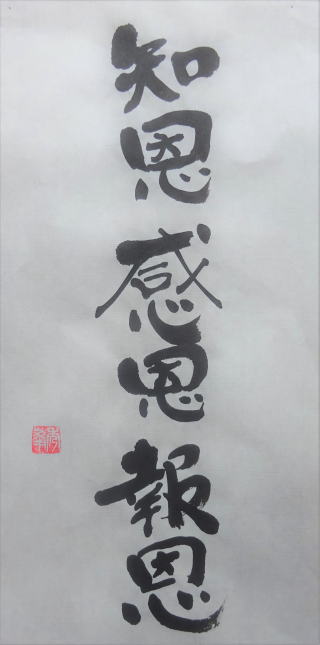 知恩感恩報恩